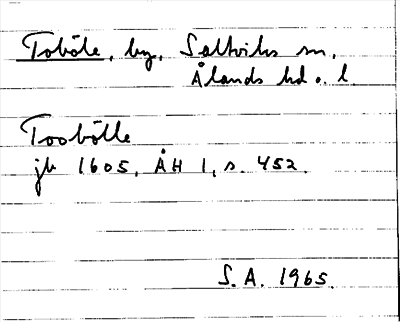 Toböle, by, Saltviks sn,
Ålands hd o. l.
Toobölle
jb 1605, ÅH 1, s. 452.
S. A. 1965.